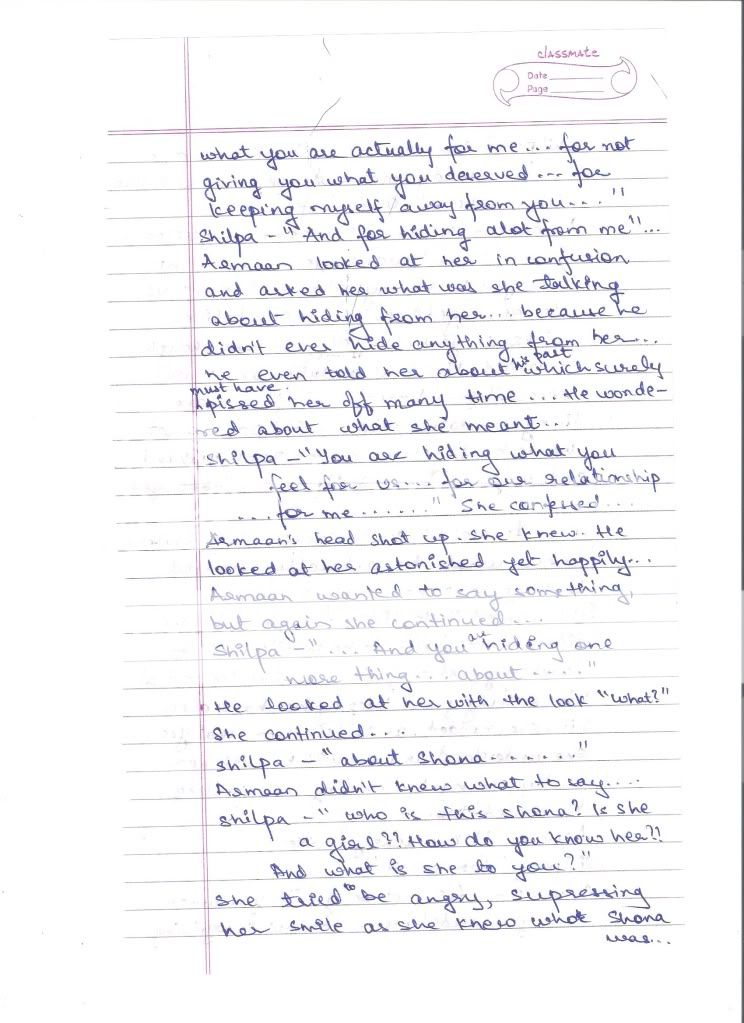 classmate
Date
Page
what you are actually for me... for not
giving you what you deserved... for
keeping myself away from you..."
Shilpa - "And for hiding alot from me"...
Armaan looked at her in confusion
and asked her what was she talking
about hiding from her... because he
didn't ever hide anything from her...
he even told her about his past which surely
must have pissed her off many time... He wonde-
red about what she meant...
Shilpa - "You are hiding what you
feel for us... for our relationship
....for me......" She confessed...
Armaan's head shot up. She knew. He
looked at her astonished yet happily...
Armaan wanted to say something,
but again she continued...
Shilpa - "... And you are hiding one
more thing... about...."
He looked at her with the look "what?"
She continued...
Shilpa - "about Shona......"
Armaan didn't knew what to say....
Shilpa - "who is this shona? Is she
a girl?? How do you know her?!
And what is she to you?"
She tried to be angry, supressing
her smile as she knew what Shona
was...